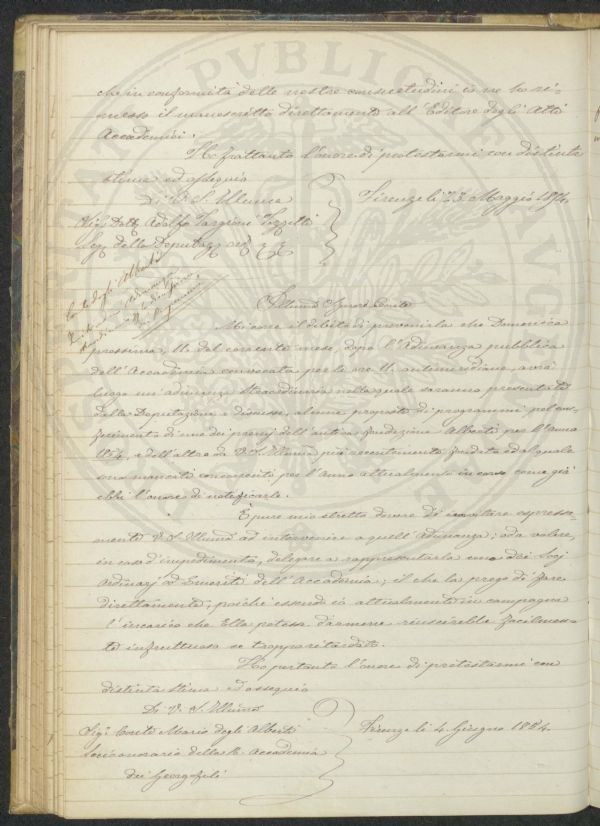 che in conformità delle nostre consuetudini io ne ho ri=
messo il manoscritto direttamente all'Editore degli Atti
Accademici.
Ho frattanto l'onore di protestarmi con distinta
stima ed ossequio
Di V. S. Illma Firenze li 23. Maggio
Sig. Dott. Adolfo Targioni Tozzetti
Seg. della Deputaz.
Conte degli Alberti
Illmo Signor Conte
Mi corre il debito di prevenirla che Domenica
prossima, 11. del corrente mese, dopo l'Adunanza pubblica
dell'Accademia convocata per le ore 11. antimeridiane, avrà
luogo un'adunanza straordinaria nella quale saranno presentate
dalla Deputazione e discusse, alcune proposte di programmi pel con=
ferimento di uno dei premj dell'antica fondazione Alberti per l'anno
e dell'altro da V. S. Illma più recentemente fondato ed al quale
sono mancati concorrenti per l'anno attualmente in corso come già
ebbi l'onore di notificarle.
È pure mio stretto dovere di invitare espressa=
mente V. S. Illma ad intervenire a quell'Adunanza; o da volere,
in caso d'impedimento, delegare a rappresentarla uno dei Socj
Ordinarj od Emeriti dell'Accademia; il che la prego di fare
direttamente; poichè essendo io attualmente in campagna
l'incarico che Ella potesse darmene riuscirebbe facilmen=
te infruttuoso se troppo ritardato.
Ho pertanto l'onore di protestarmi con
distinta stima ed ossequio
Di V. S. Illma
Sig. Conte Mario degli Alberti Firenze li 4. Giugno
Socio onorario della R. Accademia
dei Georgofili